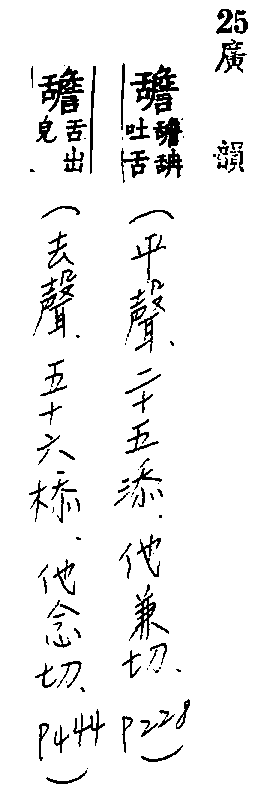 25 廣韻
舚 舚舑吐舌 (平聲、二十五添、他兼切、P228)
舚 舌出皃 (去聲、五十六㮇、他念切、P444)